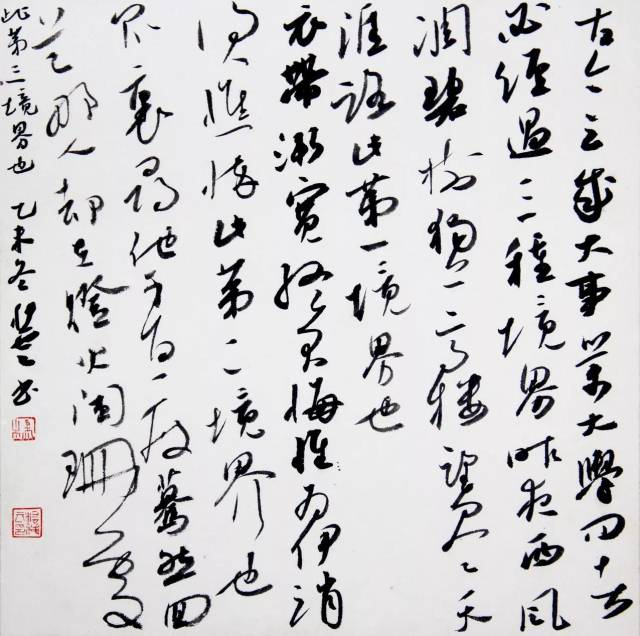 古今之成大事業大學問者
必經過三種境界昨夜西風
凋碧樹獨上高樓望盡天
涯路此第一境界也
衣帶漸寬終不悔惟為伊消
得人憔悴此第二境界也
眾裏尋他千百度驀然回
首那人却在燈火闌珊處
此第三境界也 乙未冬 書